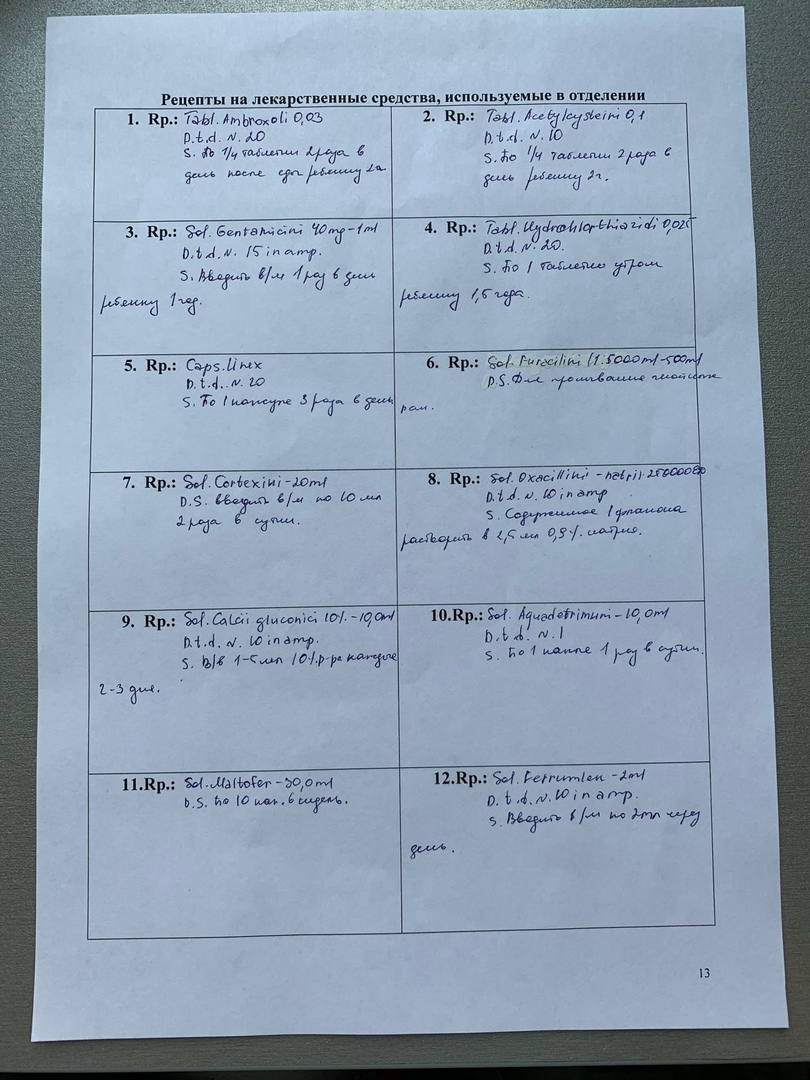 Рецепты на лекарственные средства, используемые в отделении
1. Rp.: Tabl. Ambroxoli 0,03
D.t.d. N. 20
S. По 1/4 таблетки 2 раза в
день после еды ребенку 2г.
2. Rp.: Tabl. Acetylcysteini 0,1
D.t.d. N. 10
S. По 1/4 таблетки 2 раза в
день ребенку 2г.
3. Rp.: Sol. Gentamicini 40mg-1ml
D.t.d. N. 15 in amp.
S. Вводить в/м 1 раз в день
ребенку 1 год.
4. Rp.: Tabl. Hydrochlorthiazidi 0,025
D.t.d. N. 20.
S. По 1 таблетке утром
ребенку 1,5 года.
5. Rp.: Caps. Linex
D.t.d. N. 20
S. По 1 капсуле 3 раза в день
6. Rp.: Sol. Furacilini 1:5000ml-500ml
D.S. Для промывание гнойных
ран.
7. Rp.: Sol. Cortexini-20ml
D.S. вводить в/м по 10 мл
2 раза в сутки.
8. Rp.: Sol. Oxacillini - natrii
D.t.d. N. 10 in amp
S. Содержимое 1 флакона
растворить в 2,5 мл 0,9%. натрия.
9. Rp.: Sol. Calcii gluconici 10%.-10,0ml
D.t.d. N. 10 in amp.
S. В/в 1-5мл 10% р-ра каждые
2-3 дня.
10.Rp.: Sol. Aquadetrimuni-10,0ml
D.t.d. N. 1
S. По 1 капле 1 раз в сутки.
11.Rp.: Sol. Maltofer-30,0ml
D.S. По 10 кап. в
12.Rp.: Sol. Ferrumlek-2ml
D.t.d. N. 10 in amp.
S. Вводить в/м по 2мл через
день.
13